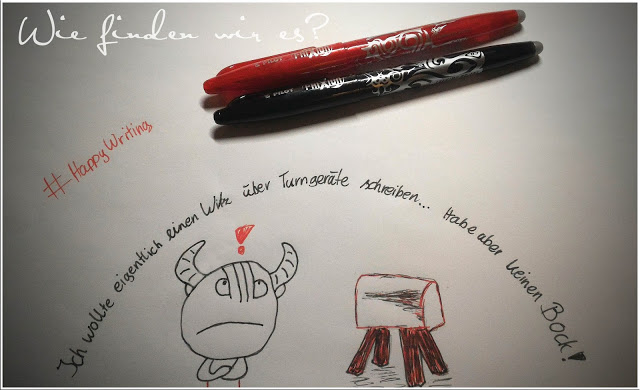 Wie finden wir es?
FriXion
PILOT FriXion
#HappyWriting
Ich wollte eigentlich einen Witz über Turngeräte schreiben... Habe aber keinen Bock!
!